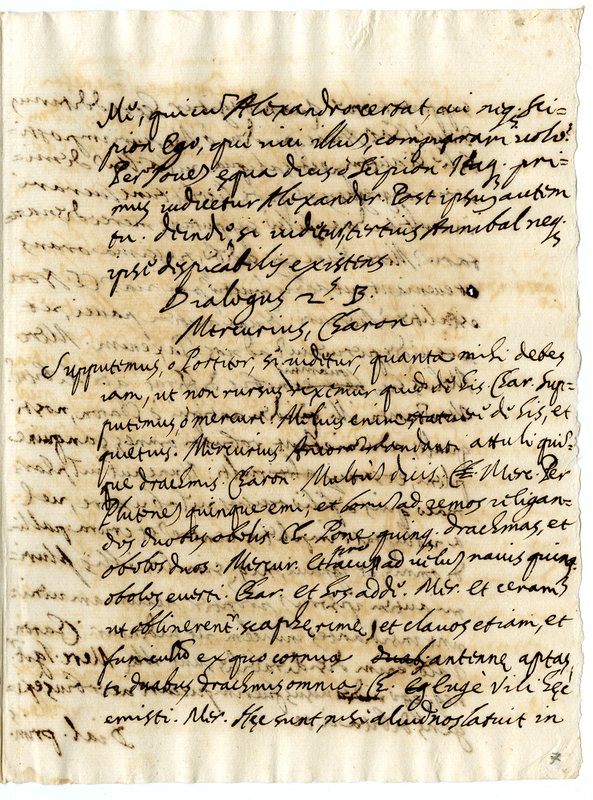 Mi, qui cu Alexandro certat, an neq. Sci=
pion Ego, qui vici illu, comparari volo.
Per Joue equa dicis o Scipion. Itaq. pri=
mus iudicetur Alexander. Post ipsu autem
tu. deinde, si uidetur, tertius Annibal neq.
ipse despicabilis existens.
Dialogus 2.s B.
Mercurius, Charon
Supputemus, o Portitor, si uidetur, quanta mihi debes
iam, ut non rursus rixemur quid de his. Char. Sup=
putemus o mercuri. Melius enim statui de his, et
quietius. Mercurius mandanti attuli quin=
que drachmis. Charon. Multu dicis. Mer. Per
Plutone quinque emi, et ad remos religan=
dos duobus obolis. Ch. Pone quinq. drachmas, et
obolos duos. Mercur. Et acu pro ad uelu nauis quinq.
obolos euerti. Char. et hos adde. Mer. Et ceram
ut oblinerent scaphe rime, et clauos etiam, et
funiculu ex quo cornua antenne aptas,
ti duabus drachmis omnia. Ch. Euge Vili hec
emisti. Mer. Hec sunt, nisi aliud nos latuit in
7